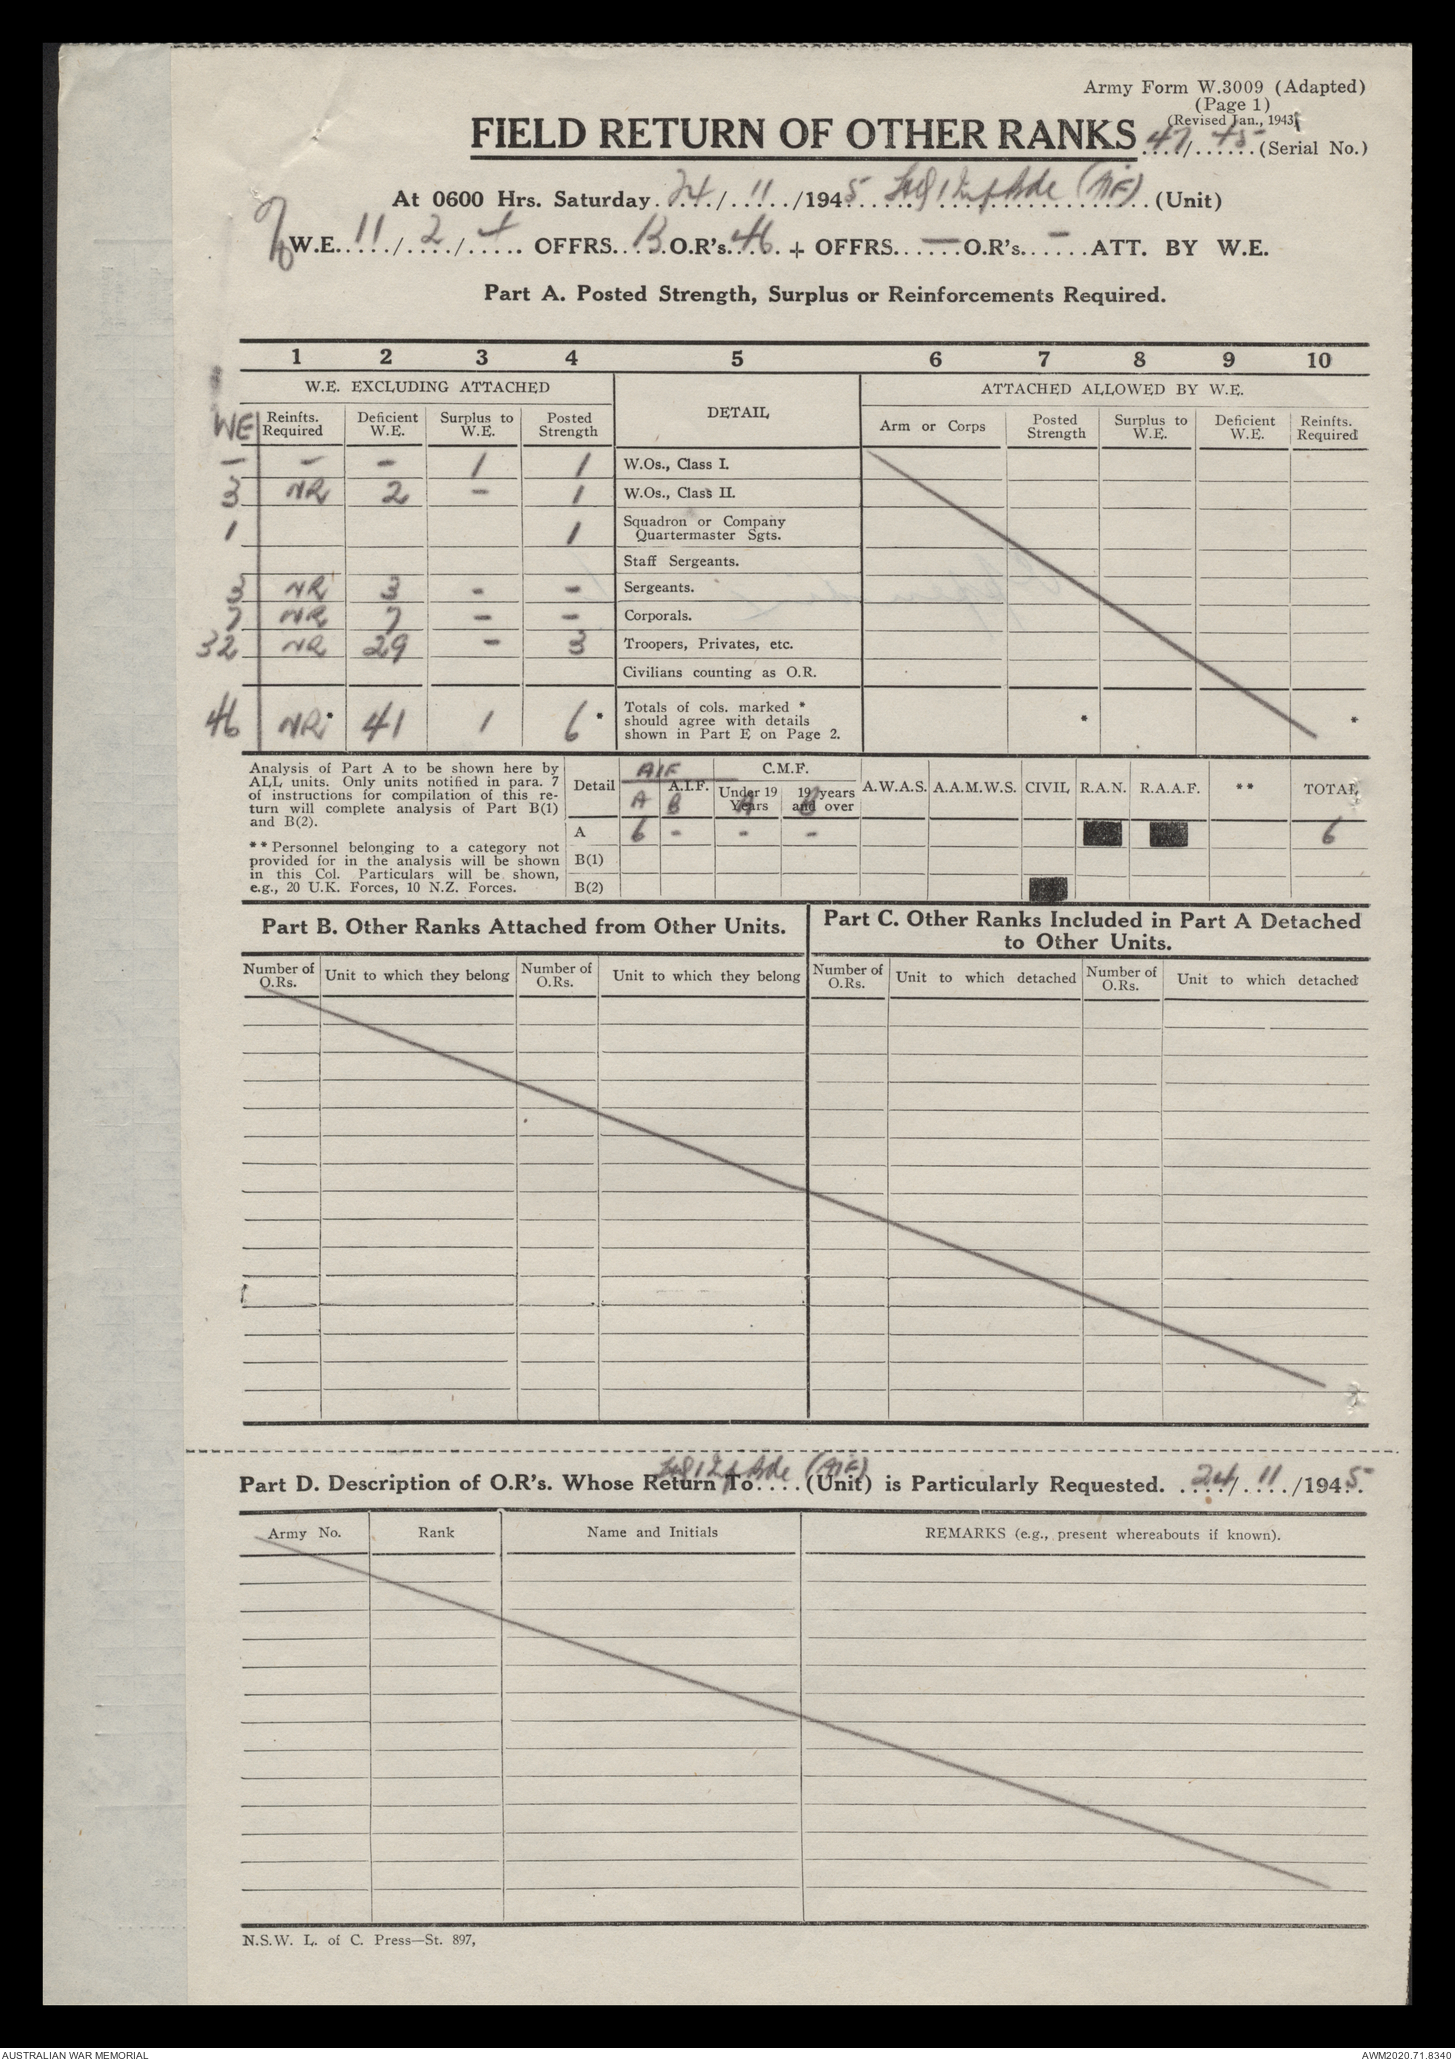 Army Form W.3009 (Adapted)
(Page 1)
(Revised Jan., 1943)
FIELD RETURN OF OTHER RANKS 47/45 (Serial No.)
At 0600 Hrs. Saturday 24/11/1945 HQ 1 Inf Bde (AIF) (Unit)
W.E. 11/2/4 OFFRS. 13 O.R's. 46 + OFFRS. — O.R's. — ATT. BY W.E.
Part A. Posted Strength, Surplus or Reinforcements Required.
1 2 3 4 5 6 7 8 9 10
W.E. EXCLUDING ATTACHED DETAIL ATTACHED ALLOWED BY W.E.
WE Reinfts. Required Deficient W.E. Surplus to W.E. Posted Strength Arm or Corps Posted Strength Surplus to W.E. Deficient W.E. Reinfts. Required
— — — 1 1 W.Os., Class I.
3 NR 2 — 1 W.Os., Class II.
1 1 Squadron or Company Quartermaster Sgts.
Staff Sergeants.
3 NR 3 — — Sergeants.
7 NR 7 — — Corporals.
32 NR 29 — 3 Troopers, Privates, etc.
Civilians counting as O.R.
46 NR* 41 1 6* Totals of cols. marked * should agree with details shown in Part E on Page 2. * *
Analysis of Part A to be shown here by
ALL units. Only units notified in para. 7
of instructions for compilation of this re-
turn will complete analysis of Part B(1)
and B(2).
** Personnel belonging to a category not
provided for in the analysis will be shown
in this Col. Particulars will be shown,
e.g., 20 U.K. Forces, 10 N.Z. Forces.
AIF C.M.F.
Detail A.I.F. Under 19 Years 19 years and over A.W.A.S. A.A.M.W.S. CIVIL R.A.N. R.A.A.F. ** TOTAL
A B A B
A 6 - - - 6
B(1)
B(2)
Part B. Other Ranks Attached from Other Units.
Part C. Other Ranks Included in Part A Detached
to Other Units.
Number of O.Rs. Unit to which they belong Number of O.Rs. Unit to which they belong Number of O.Rs. Unit to which detached Number of O.Rs. Unit to which detached
Part D. Description of O.R's. Whose Return To HQ 1 Inf Bde (AIF) (Unit) is Particularly Requested. 24/11/1945.
Army No. Rank Name and Initials REMARKS (e.g., present whereabouts if known).
N.S.W. L. of C. Press—St. 897,
AUSTRALIAN WAR MEMORIAL
AWM2020.71.8340